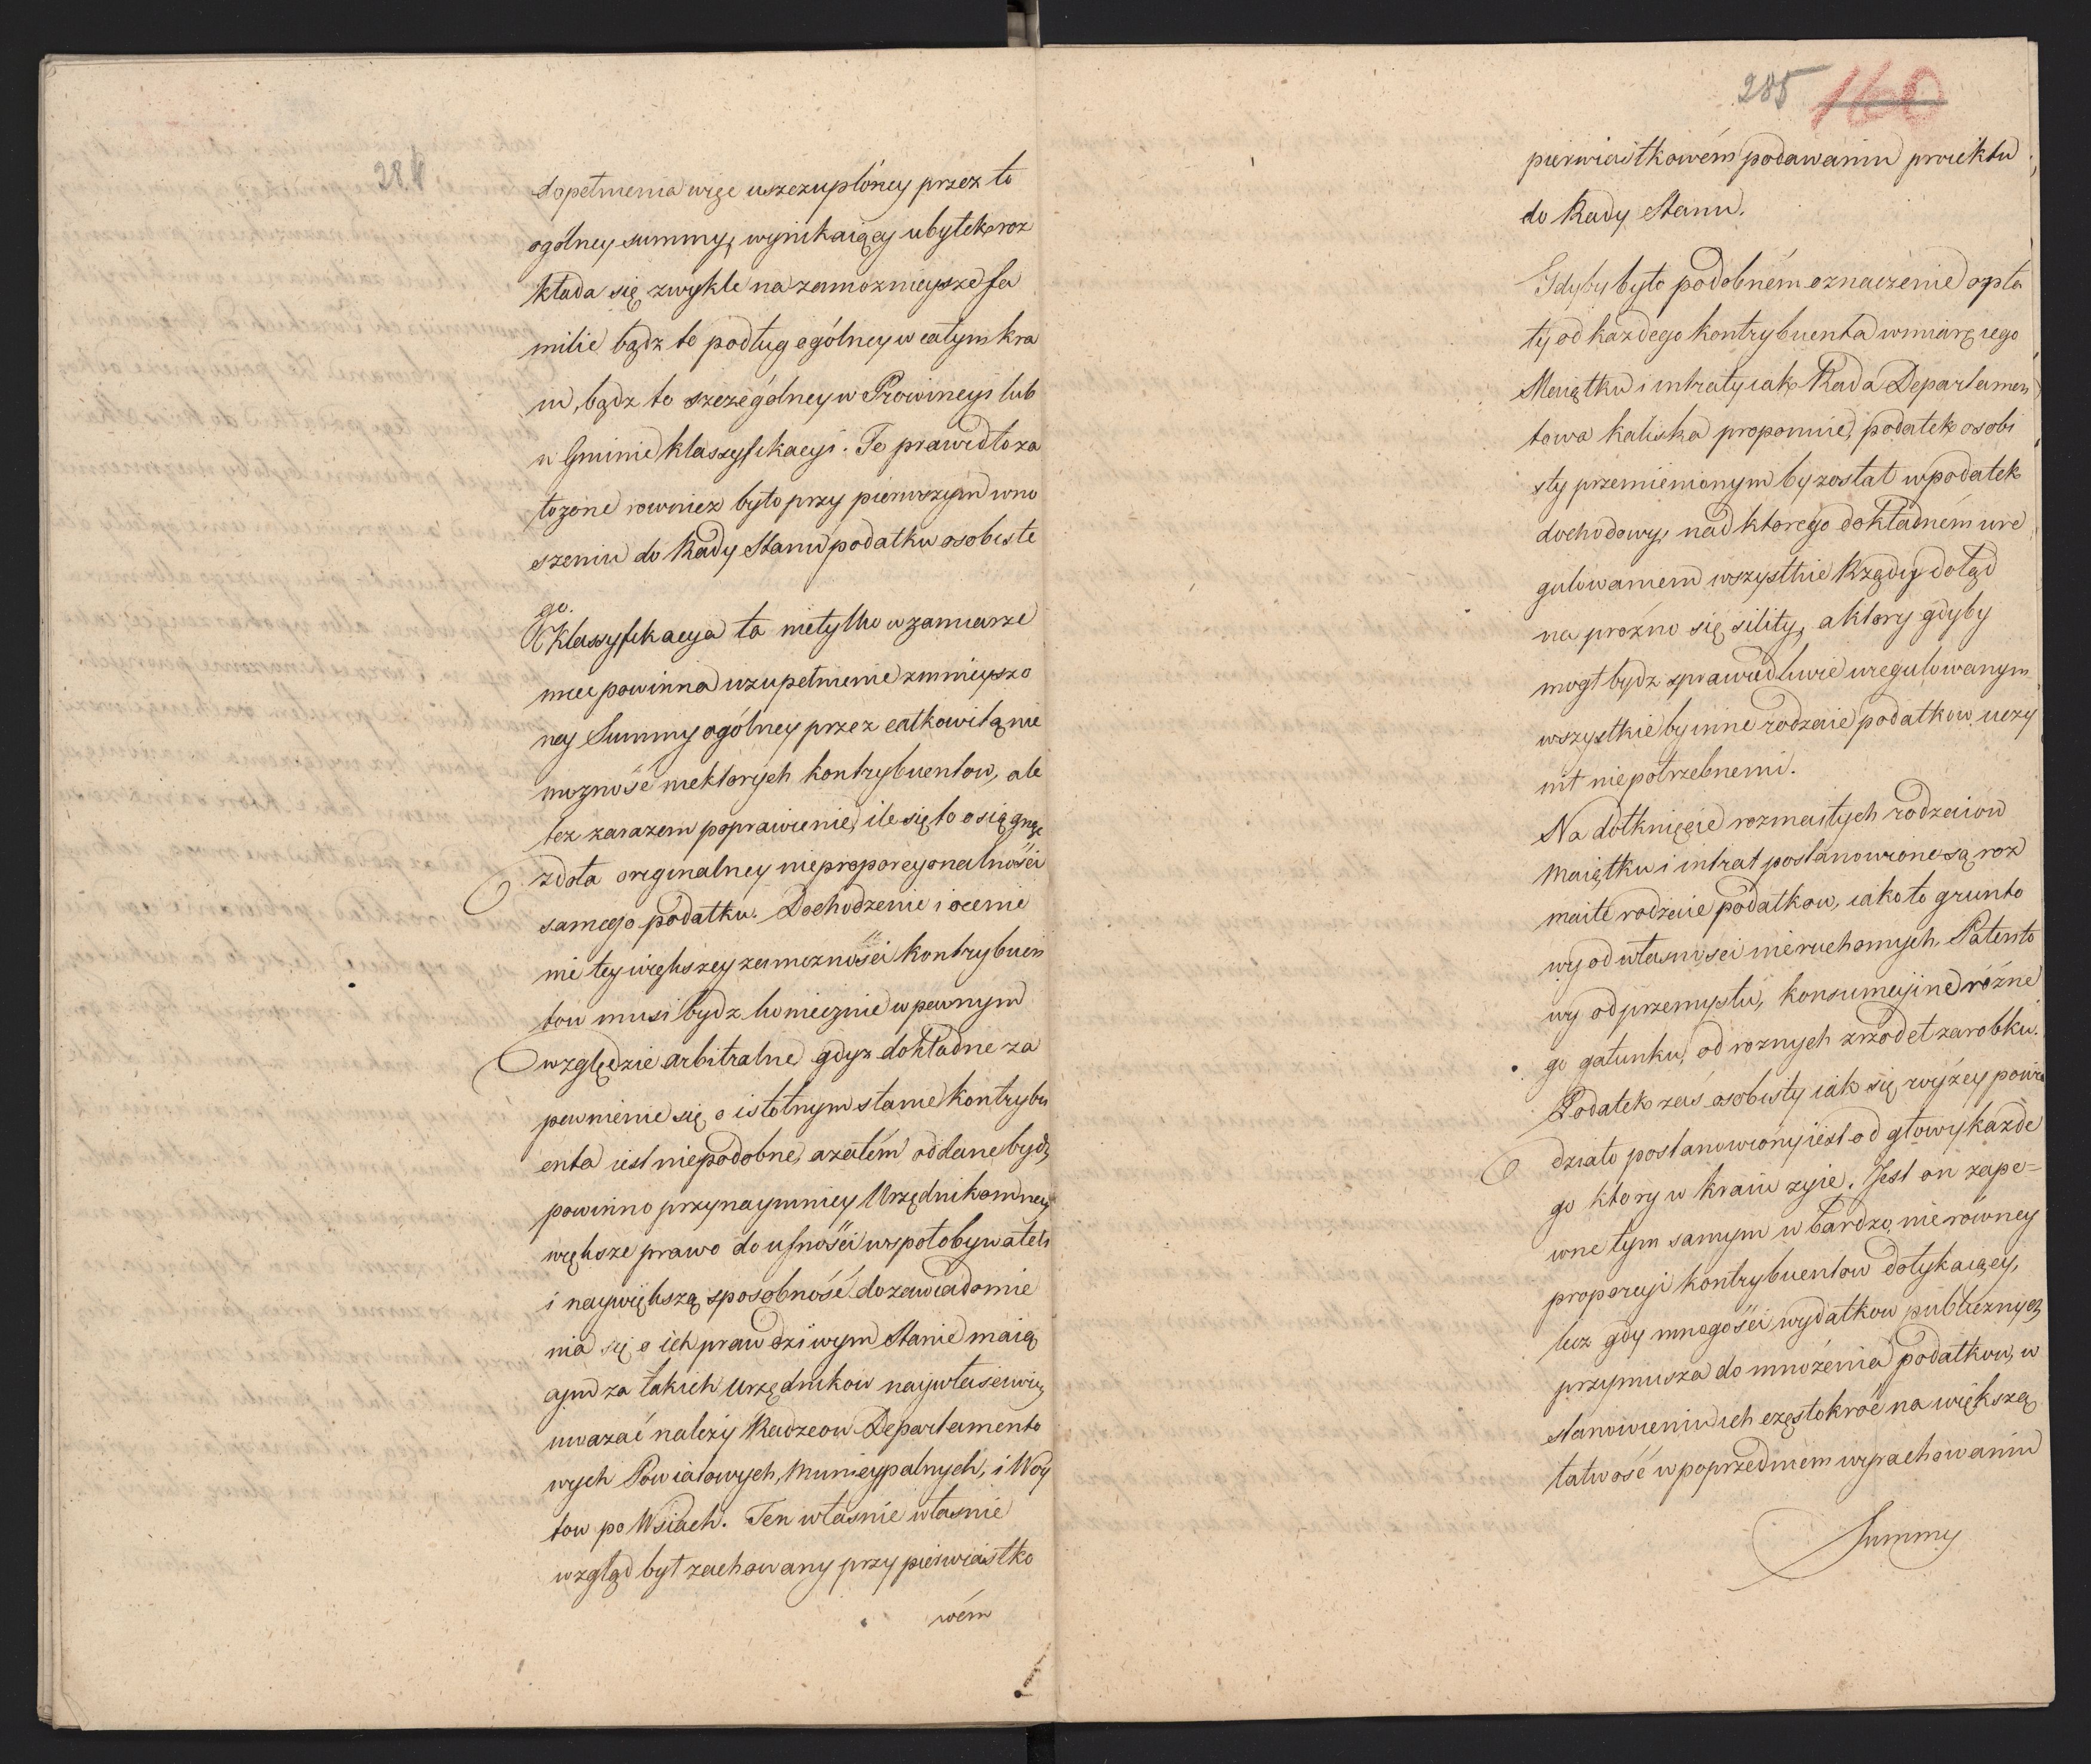 284
dopełnienia więc uszczuplóney przez to
ogólney summy, wynikaiący ubytek roz
kłada się zwykle na zamoznieysze fa
milie bądz to podług ogólney w całym kra
iu, bądz to szczególney w Prowincyi lub
w Gminie klassyfikacyi. To prawidło za
łozone rowniez było przy pierwszym wno
szeniu do Rady Stanu podatku osobiste
go.
Klassyfikacya ta nietylko w zamiarze
miec powinna uzupełnienie zmnieyszo
ney Summy ogólney przez całkowitą nie
mozność niektorych kontrybuentow, ale
tez zarazem poprawienie, ile się to osiągnąc
zdoła originalney nieproporcyonalności
samego podatku. Dochodzenie i ocenie
nie tey większey zamozności kontrybuen
tow musi bydz koniecznie w pewnym
względzie arbitralne gdyz dokładne za
pewnienie się o istotnym stanie kontrybu
enta iest niepodobne, a zatém oddane bydz
powinno przynaymniey Urzędnikom nay
większe prawo do ufności wspołobywateli
i naywiększą sposobność do zawiadomie
nia się o ich prawdziwym Stanie maią
cym za takich Urzędnikow naywłasciwiey
uwazać nalezy Radzcow Departamento
wych Powiatowych, Municypalnych, i Woy
tow po Wsiach. Ten własnie własnie
wzgląd był zachowany przy pierwiastko
wém
285 160
pierwiastkowém podawaniu proiektu
do Rady Stanu.
Gdyby było podobném oznaczenie opła
ty od kazdego kontrybuenta w miarę iego
Maiątku i intraty iak Rada Departamen
towa kaliska proponuie, podatek osobi
sty przemienionym by został w podatek
dochodowy, nad ktorego dokładném ure
gulowaniem wszystkie Rządy dotąd
na prózno się siliły, a ktory gdyby
mogł bydz sprawiedliwie uregulowanym
wszystkie by inne rodzaie podatkow uczy
nił niepotrzebnemi.
Na dotknięcie rozmaitych rodzaiow
Maiątku i intrat postanowione są roz
maite rodzaie podatkow, iako to grunto
wy od własnosci nieruchomych, Patento
wy od przemysłu, konsumcyine różne
go gatunku, od roznych zrzodeł zarobku.
Podatek zaś osobisty iak się wyżey powie
działo postanowiony iest od głowy kazde
go ktory w kraiu zyie. Jest on zape=
wne tym samym w bardzo nierówney
proporcyi kontrybuentow dotykaiącey,
lecz gdy mnogości wydatkow publicznych
przymusza do mnożenia podatkow, w
stanowieniu ich częstokroć na większą
łatwość w poprzedniem wyrachowaniu
Summy